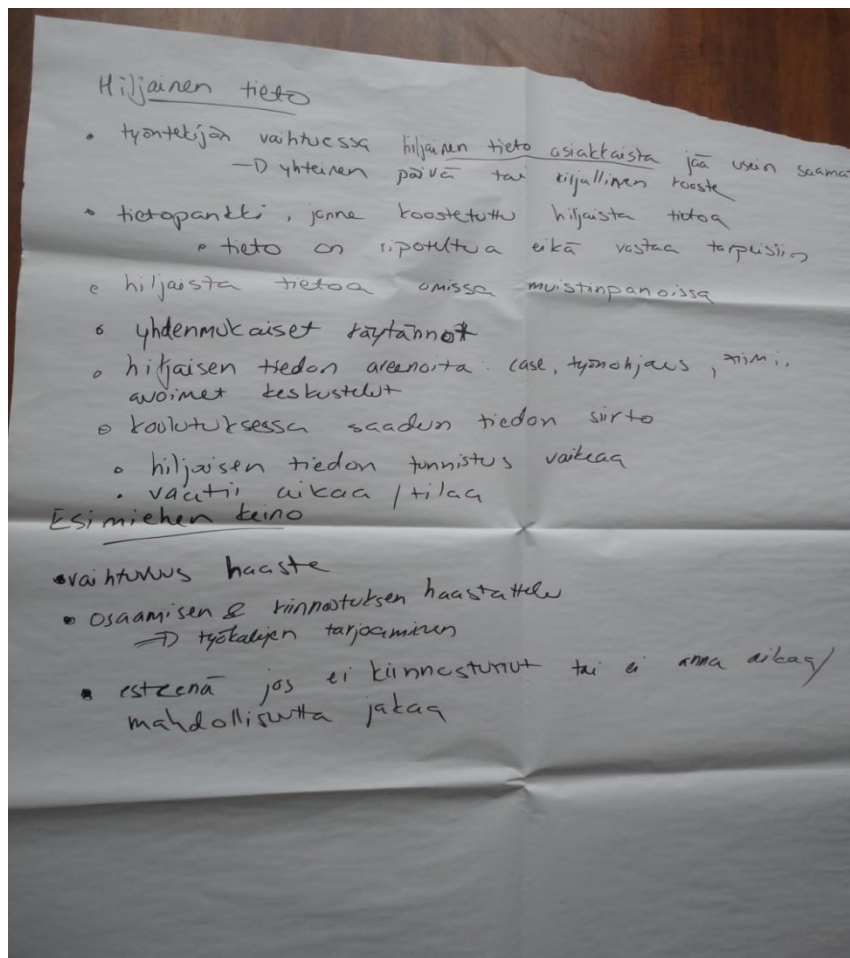 Hiljainen tieto
• työntekijän vaihtuessa hiljainen tieto asiakkaista jää usein saama
→ yhteinen päivä tai kirjallinen kooste
• tietopankki, jonne koostetuttu hiljaista tietoa
• tieto on ripoteltua eikä vastaa tarpeisiin
• hiljaista tietoa omissa muistinpanoissa
• yhdenmukaiset käytännöt
• hiljaisen tiedon areenoita: case, työnohjaus, tiimi,
avoimet keskustelut
• koulutuksessa saadun tiedon siirto
• hiljaisen tiedon tunnistus vaikeaa
• vaatii aikaa / tilaa
Esimiehen keino
• vaihtuvuus haaste
• osaamisen & kiinnostuksen haastattelu
⇒ työkalujen tarjoaminen
• esteenä jos ei kiinnostunut tai ei anna aikaa/
mahdollisuutta jakaa